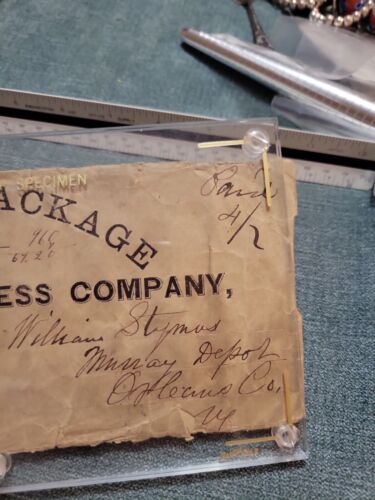 SPECIMEN
Paid
4/
ACKAGE
966
64.20
ESS COMPANY,
William Stymus
Murray Depot
Orleans Co,
NY